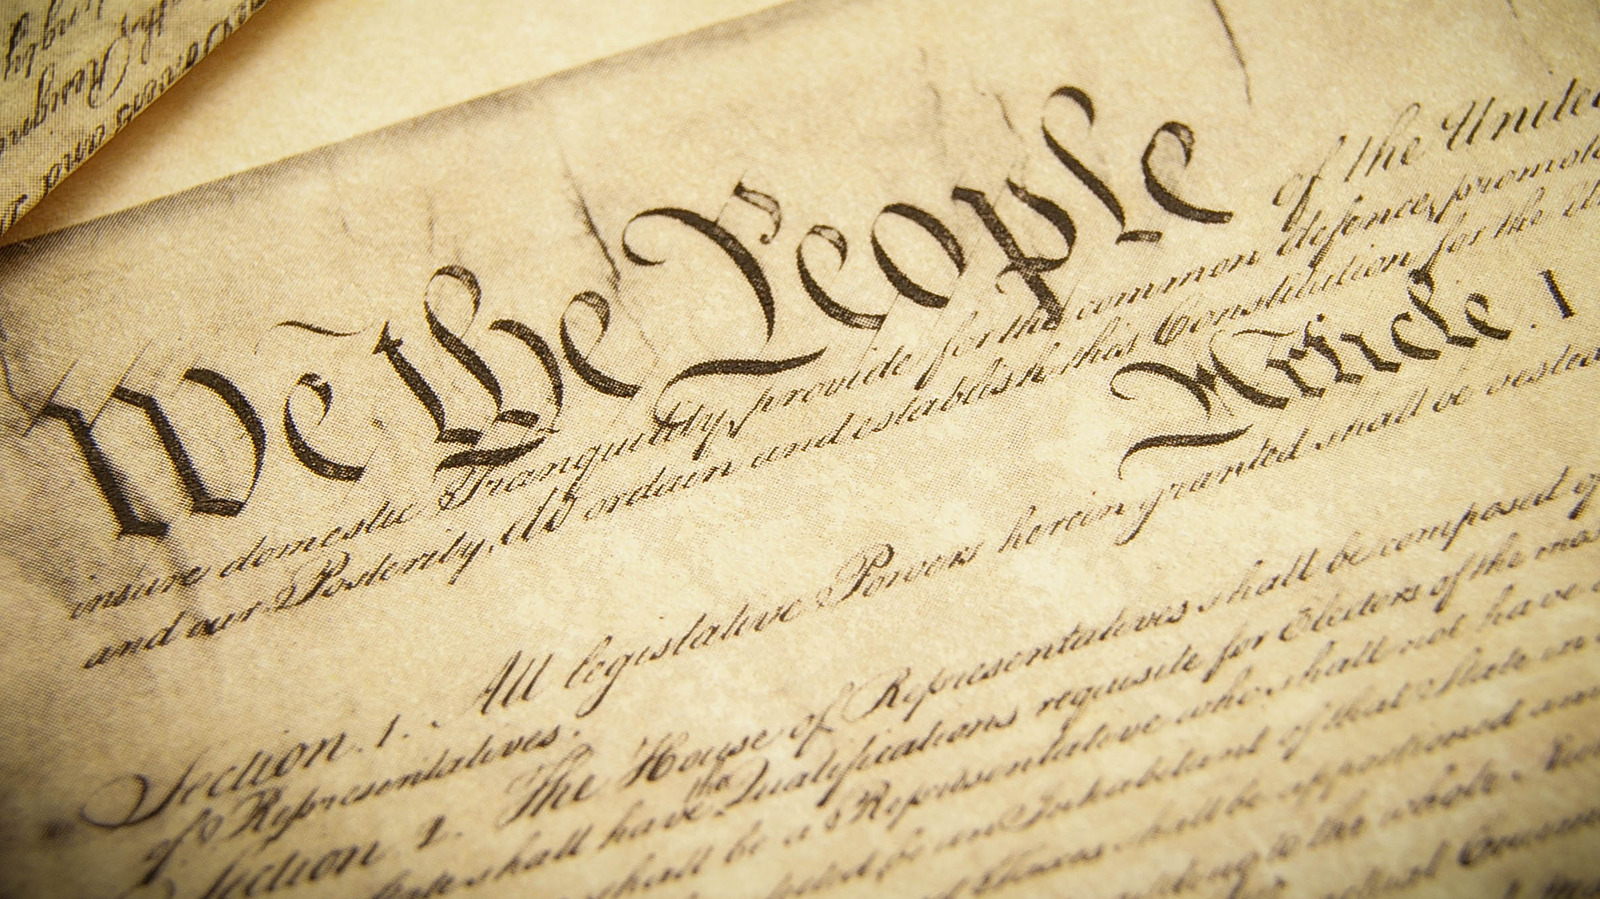 We the People of the United
insure domestic Tranquility, provide for the common defence, promote
and our Posterity, do ordain and establish this Constitution for the
Article. I
Section. 1. All legislative Powers herein granted shall be vested
of Representatives.
Section. 2. The House of Representatives shall be composed of
State shall have the Qualifications requisite for Electors of the mos
shall be a Representative who shall not have
be an Inhabitant of that State in
Taxes shall be apportioned
to the whole